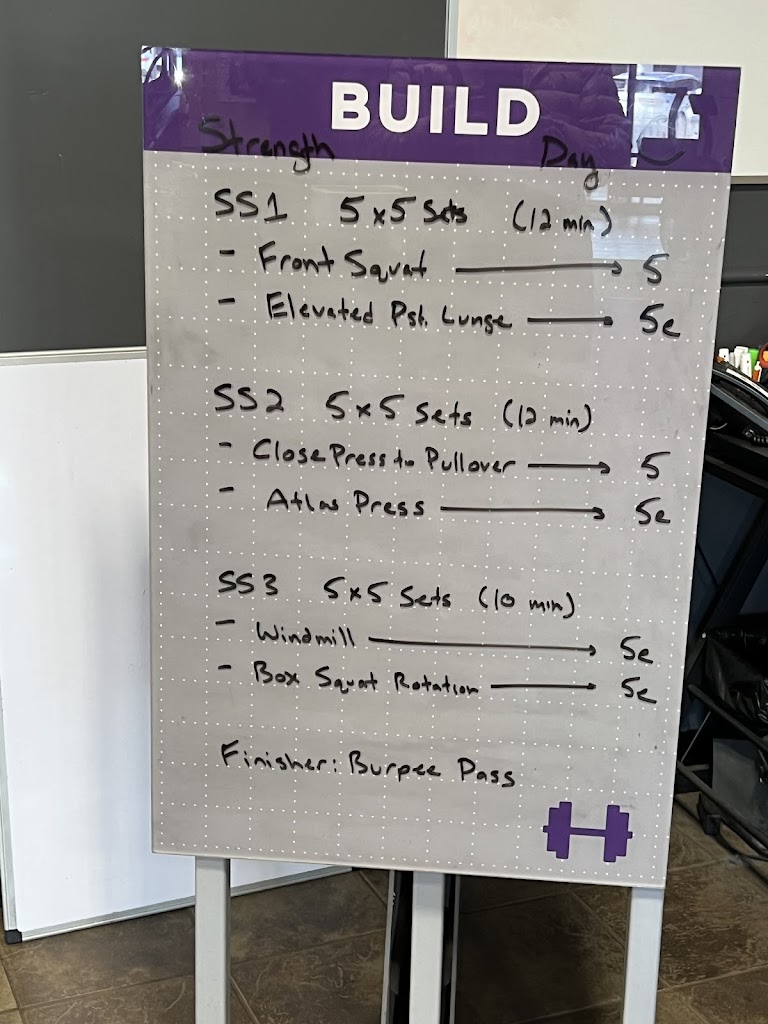 BUILD
Strength Day
SS1 5x5 Sets (12 min)
- Front Squat → 5
- Elevated Pst. Lunge → 5e
SS2 5x5 Sets (12 min)
- Close Press to Pullover → 5
- Atlas Press → 5e
SS3 5x5 Sets (10 min)
- Windmill → 5e
- Box Squat Rotation → 5e
Finisher: Burpee Pass